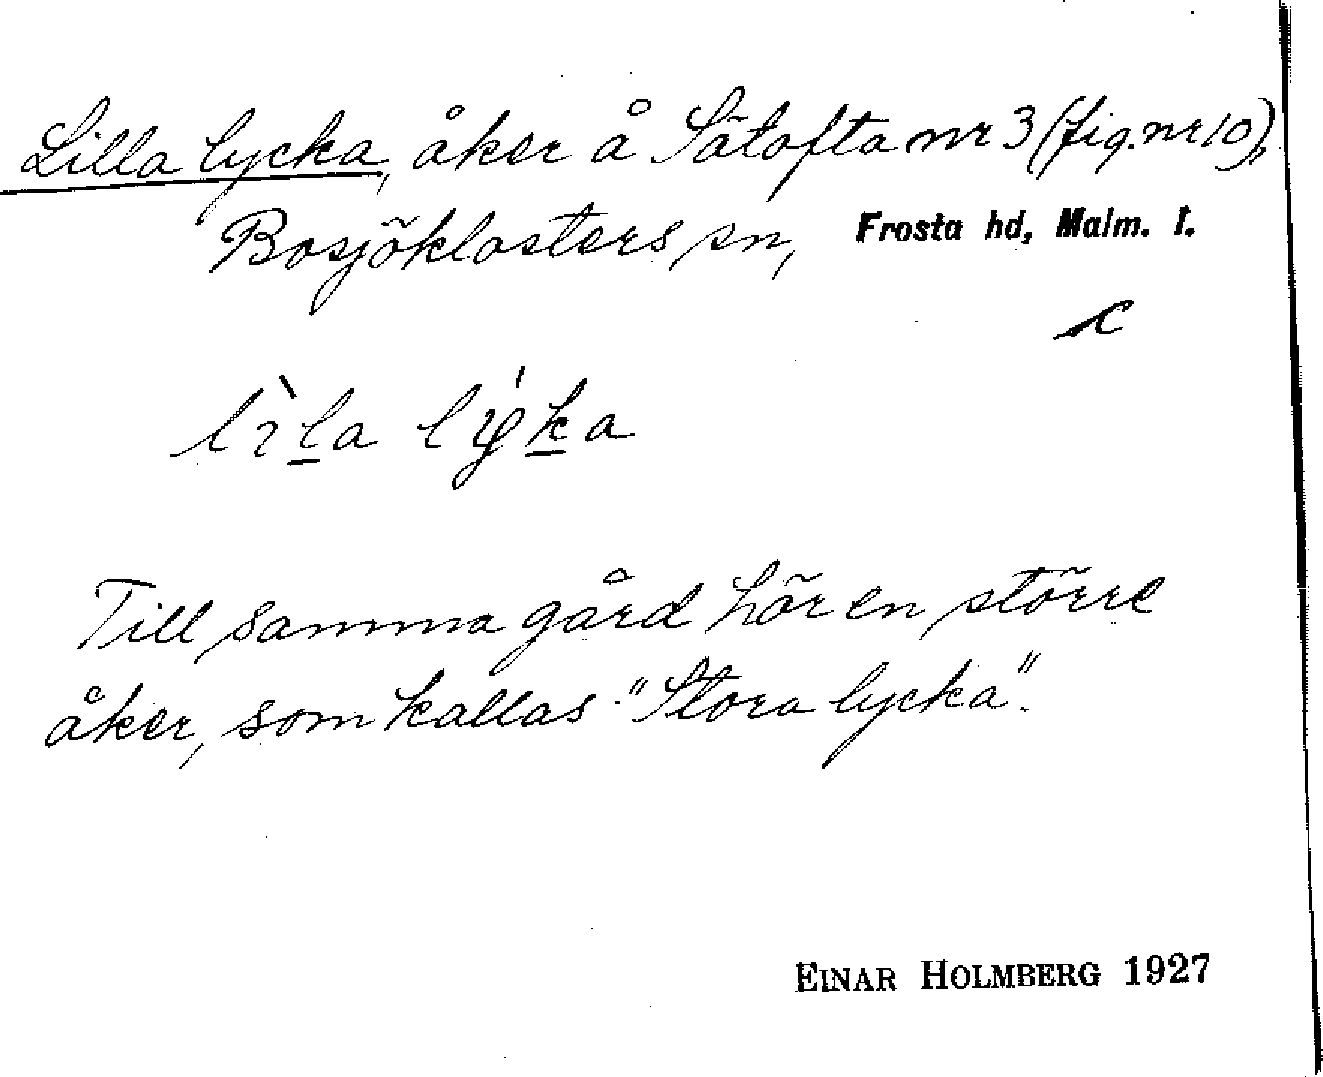 Lilla lycka, åker å Sätofta nr 3 (fig. nr 10),
Bosjöklosters sn, Frosta hd, Malm. l.
c
lìl̲a lýk̲a
Till samma gård hör en större
åker, som kallas "Stora lycka".
EINAR HOLMBERG 1927